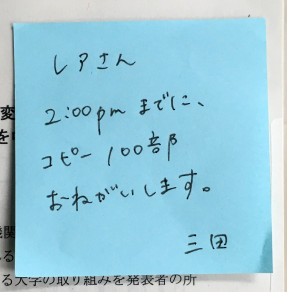 レアさん
2:00pmまでに、
コピー100部
おねがいします。
三田
変
を
機関
る大学の取り組みを発表者の所